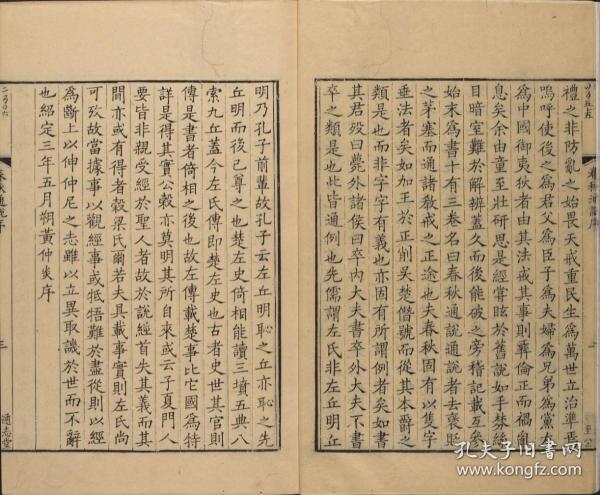 禮之非防亂之始畏天戒重民生為萬世立治準焉
嗚呼使後之為君父為臣子為夫婦為兄弟為黨友
為中國御夷狄者由其法戒其事則彝倫正而禍亂
息矣余由童至壯研思是經嘗眩於舊說如手棼絲
目暗室難於解辨蓋久而後能破之旁稽記載互矣
始末為書十有三卷名曰春秋通說通說者去褒貶
之茅塞而通諸教戒之正途也夫春秋固有以隻字
垂法者矣如加王於正削吴楚僭號而從其本爵之
類是也而非字字有義也亦固有所謂例者矣如書
其君歿曰薨外諸侯曰卒內大夫書卒外大夫不書
卒之類是也此皆通例也先儒謂左氏非左丘明丘
明乃孔子前輩故孔子云左丘明恥之丘亦恥之先
丘明而後己尊之也楚左史倚相能讀三墳五典八
索九丘蓋今左氏傳即楚左史也古者史世其官則
傳是書者倚相之後也故左傳載楚事比它國為特
詳是得其實公榖亦莫明其所自來或云子夏門人
要皆非親受經於聖人者故於說經首失其義而其
間亦或有得者榖梁氏爾若夫具載事實則左氏尚
可攷故當據事以觀經事或牴牾難於盡從則以經
為斷上以伸仲尼之志雖以立異取譏於世而不辭
也紹定三年五月朔黃仲炎序
春秋通說序
三
通志堂
孔夫子旧书网
www.kongfz.com